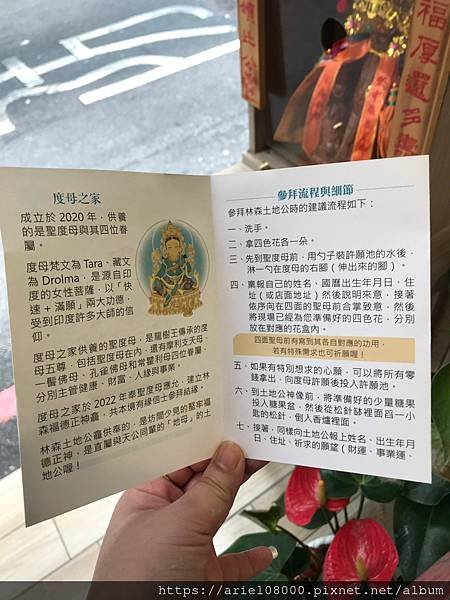 福厚還多
度母之家
成立於 2020 年，供養
的是聖度母與其四位眷
屬。
度母梵文為 Tara、藏文
為 Drolma，是源自印
度的女性菩薩，以「快
速 + 滿願」兩大功德，
受到印度許多大師的信
仰。
度母之家供養的聖度母，是龍樹王傳承的度
母五尊，包括聖度母在內，還有摩利支天母、
一髻佛母、孔雀佛母和常瞿利母四位眷屬。
分別主管健康、財富、人緣與事業。
度母之家於 2022 年奉聖度母應允，建立林
森福德正神龕，共本境有緣信士參拜結緣。
林森土地公龕供奉的，是坊間少見的堅牢福
德正神、是直屬與天公同輩的「地母」的土
地公喔！
參拜流程與細節
參拜林森土地公時的建議流程如下：
一、洗手。
二、拿四色花各一朵。
三、先到聖度母前，用勺子裝許願池的水後，
淋一勺在度母的右腳（伸出來的腳）。
四、稟報自己的姓名、國曆出生年月日、住
址（或店面地址）然後說明來意，接著
依序向在四面的聖母前合掌致意，然後
將現場已經為您準備好的四色花，分別
放在對應的花盒內。
四面聖母前有寫到其各自對應的功用，
若有特殊需求也可祈願喔！
五、如果有特別想求的心願，可以將所有零
錢拿出，向度母許願後投入許願池。
六、到土地公神像前，將準備好的少量糖果
投入糖果盆，然後從松針缽裡面舀一小
匙的松針，倒入香爐裡面。
七、接著，同樣向土地公報上姓名、出生年月
日、住址、祈求的願望（財運、事業運、
https://ariel08000.pixnet.net/album